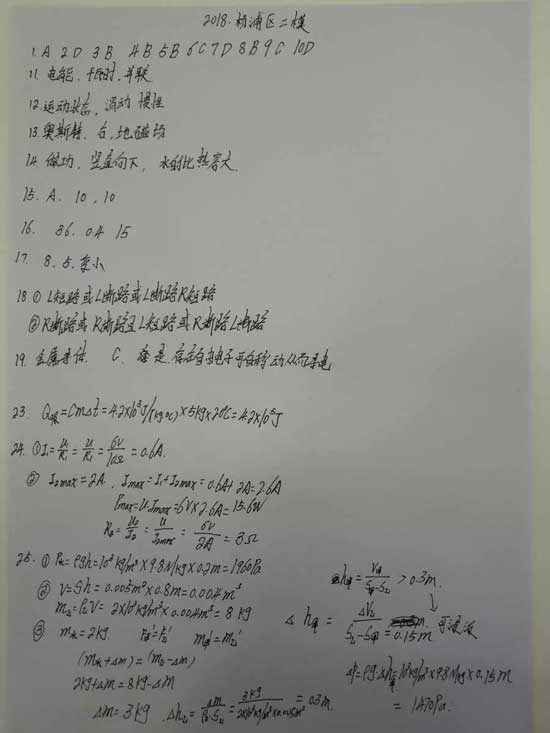 2018.杨浦区二模
1.A 2D 3B 4B 5B 6C 7D 8B 9C 10D
11.电能、千瓦时、并联
12.运动状态、滑动 惯性
13.奥斯特、右、地磁场
14.做功、竖直向下、水的比热容大
15.A. 10, 10
16. 36. 0.4 15
17. 8. 5. 变小
18 ① L短路或L断路或L断路R短路
② R断路或R断路且L短路或R断路L断路
19. 金属导体. C. 是. 存在自由电子可自由移动从而导电
23. Q吸=Cm△t=4.2×10³J/(kg℃)×5kg×20℃=4.2×10⁵J
24. ①I₁=U₁/R₁=U/R₁=6V/10Ω=0.6A.
② I₂max=2A. Imax=I₁+I₂max=0.6A+2A=2.6A
Pmax=UImax=6V×2.6A=15.6W
R₂=U₂/I₂=U/I₂max=6V/2A=3Ω
25. ① P水=ρgh=10³kg/m³×9.8N/kg×0.2m=1960Pa
② V=Sh=0.005m²×0.8m=0.004m³
m乙=ρ乙V=2×10³kg/m³×0.004m³=8kg
③ m水=2kg F甲'=F乙' m甲'=m乙'
(m水+△m)=(m乙-△m)
2kg+△m=8kg-△m
△m=3kg △h乙=△m/ρ乙·S乙=3kg/2×10³kg/m³×0.005m²=0.3m.
h甲=V甲/S甲-S乙>0.3m.
△h甲=△V乙/S乙-S甲=0.15m 可浸没
△P=ρg△h甲=10³kg/m³×9.8N/kg×0.15m
=1470Pa.